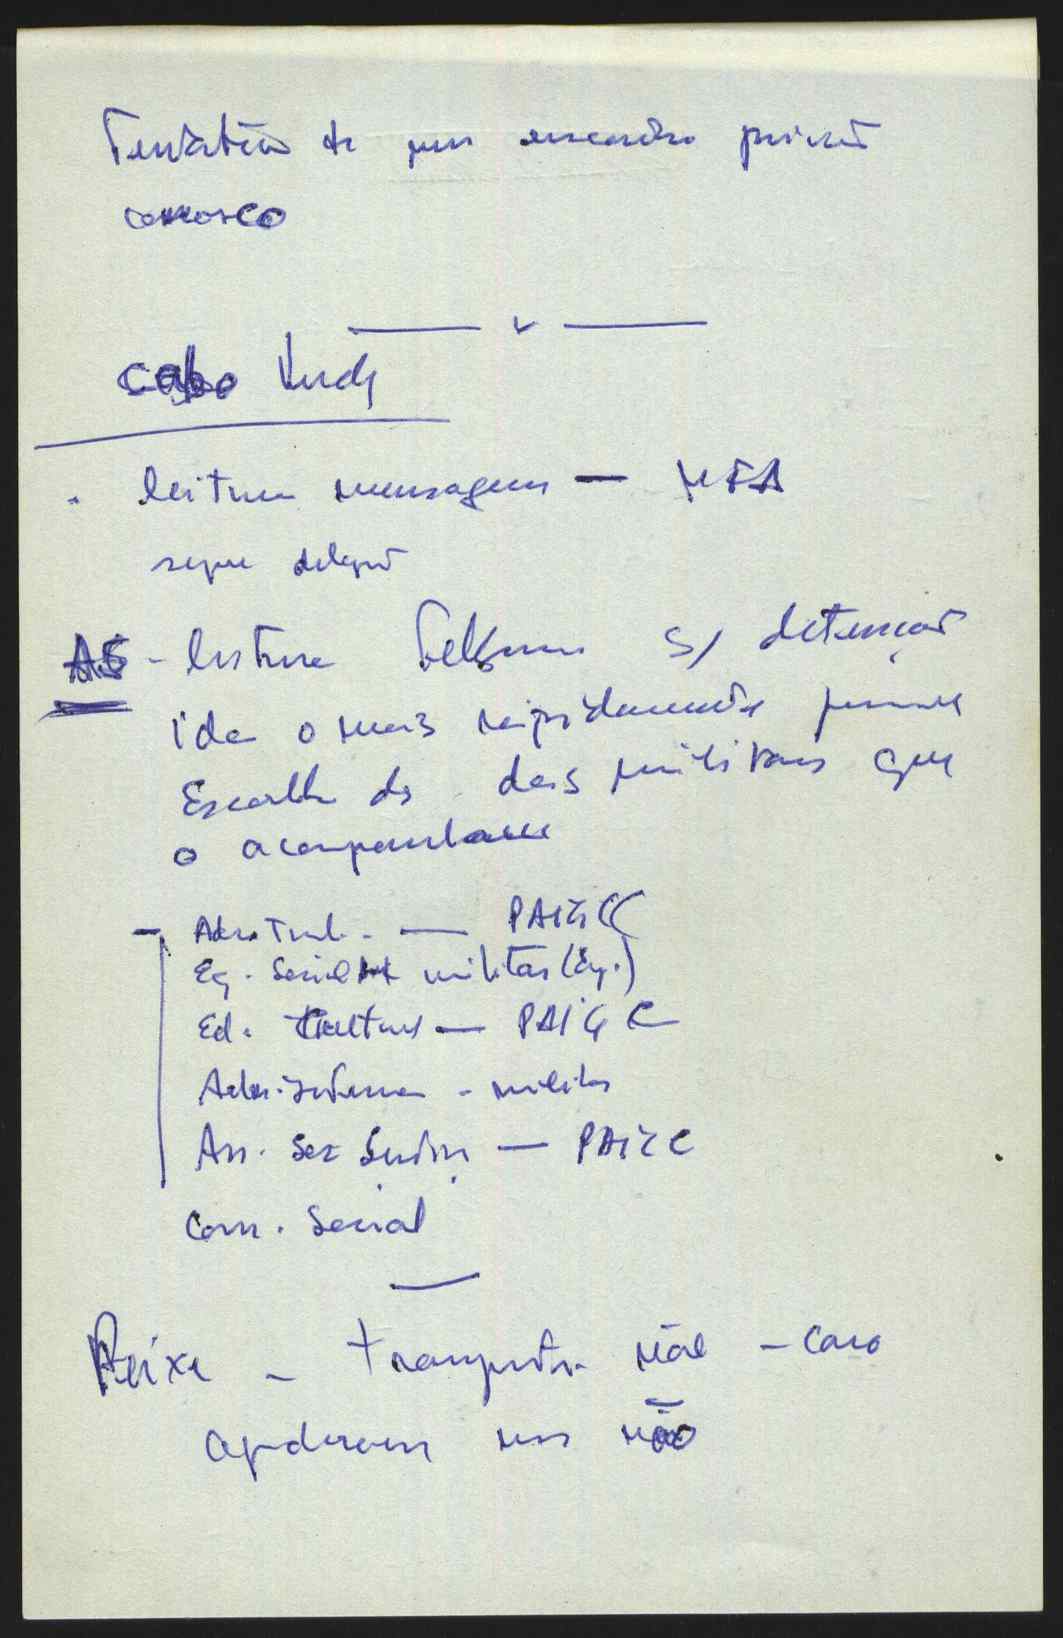 Tentativa de um encontro privado
connosco
Cabo Verde
. leitura mensagem — MFA
segue delegad
AS - leitura telegrama s/ detenção
ida o mais rapidamente
Escolha de dois militares que
o acompanham
- Adm. Trab. — PAIGC
Eq. Social militar (Eng.)
Ed. Cultura — PAIGC
Adm. Interna - militar
Ass. — PAIGC
Com. Social
Peixe - transporta não - caso
apodreceu